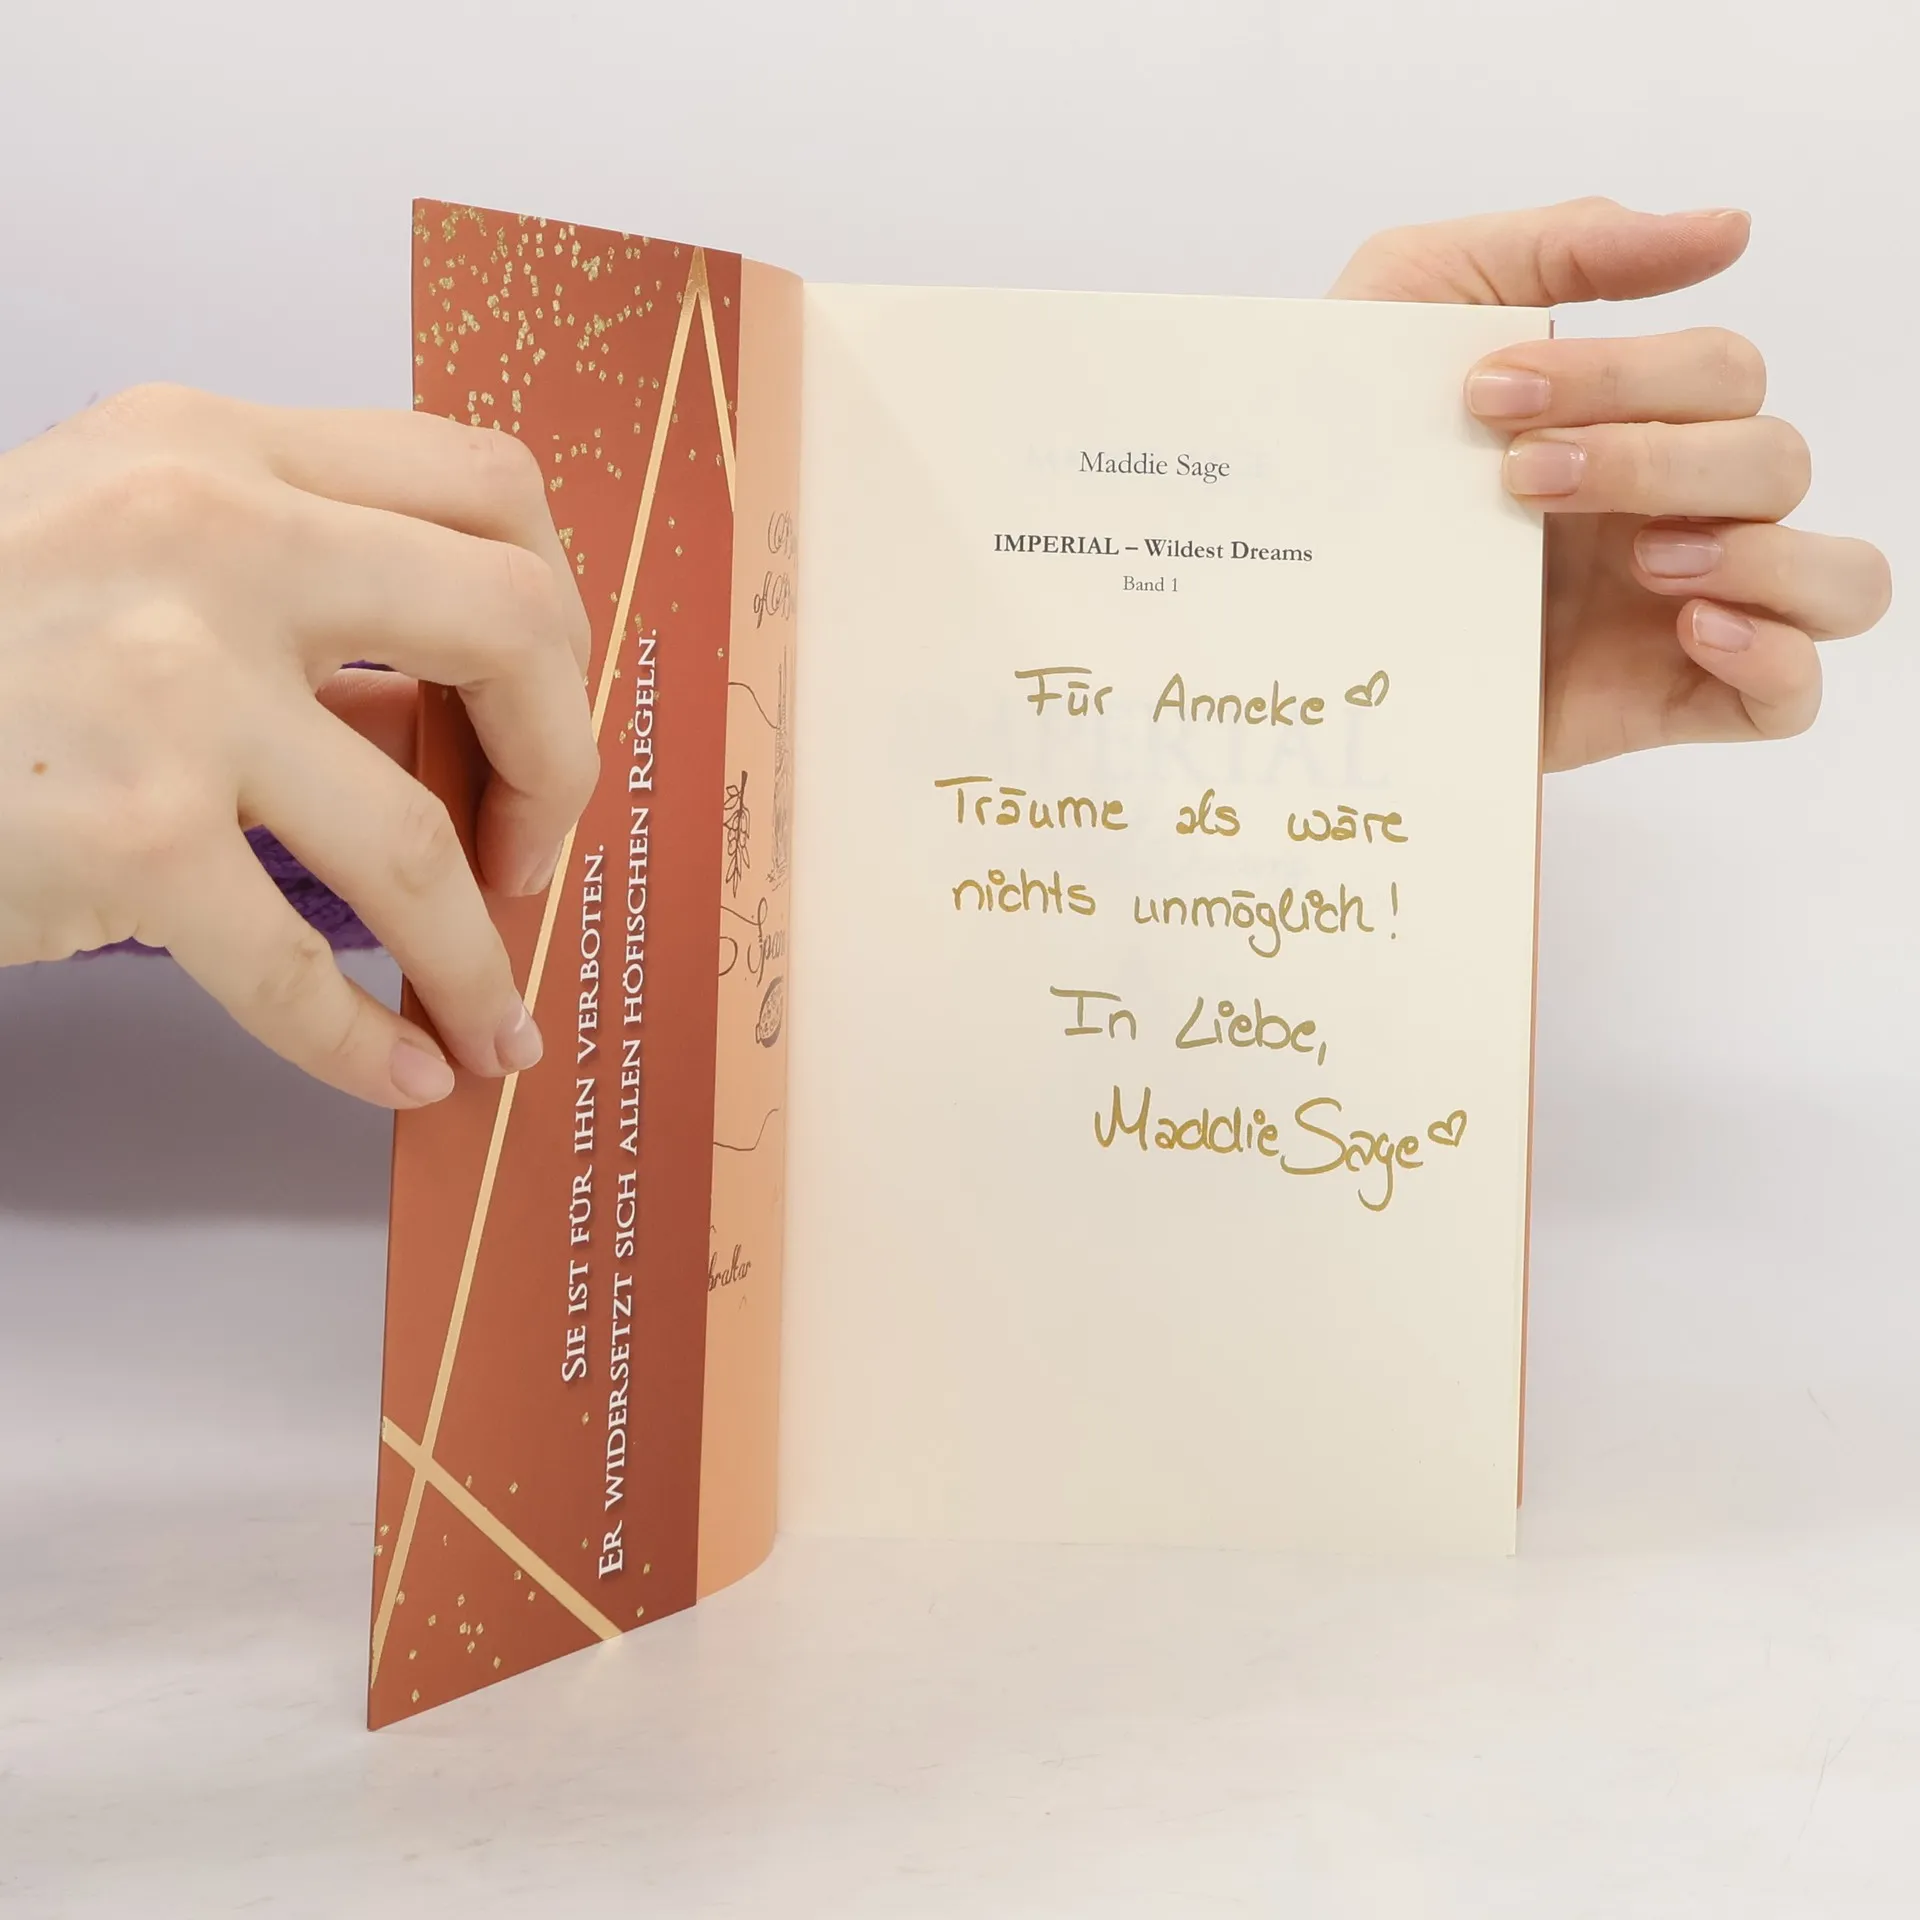 SIE IST FÜR IHN VERBOTEN.
ER WIDERSETZT SICH ALLEN HÖFISCHEN REGELN.
Maddie Sage
IMPERIAL – Wildest Dreams
Band 1
Für Anneke ♡
Träume als wäre
nichts unmöglich!
In Liebe,
Maddie Sage ♡